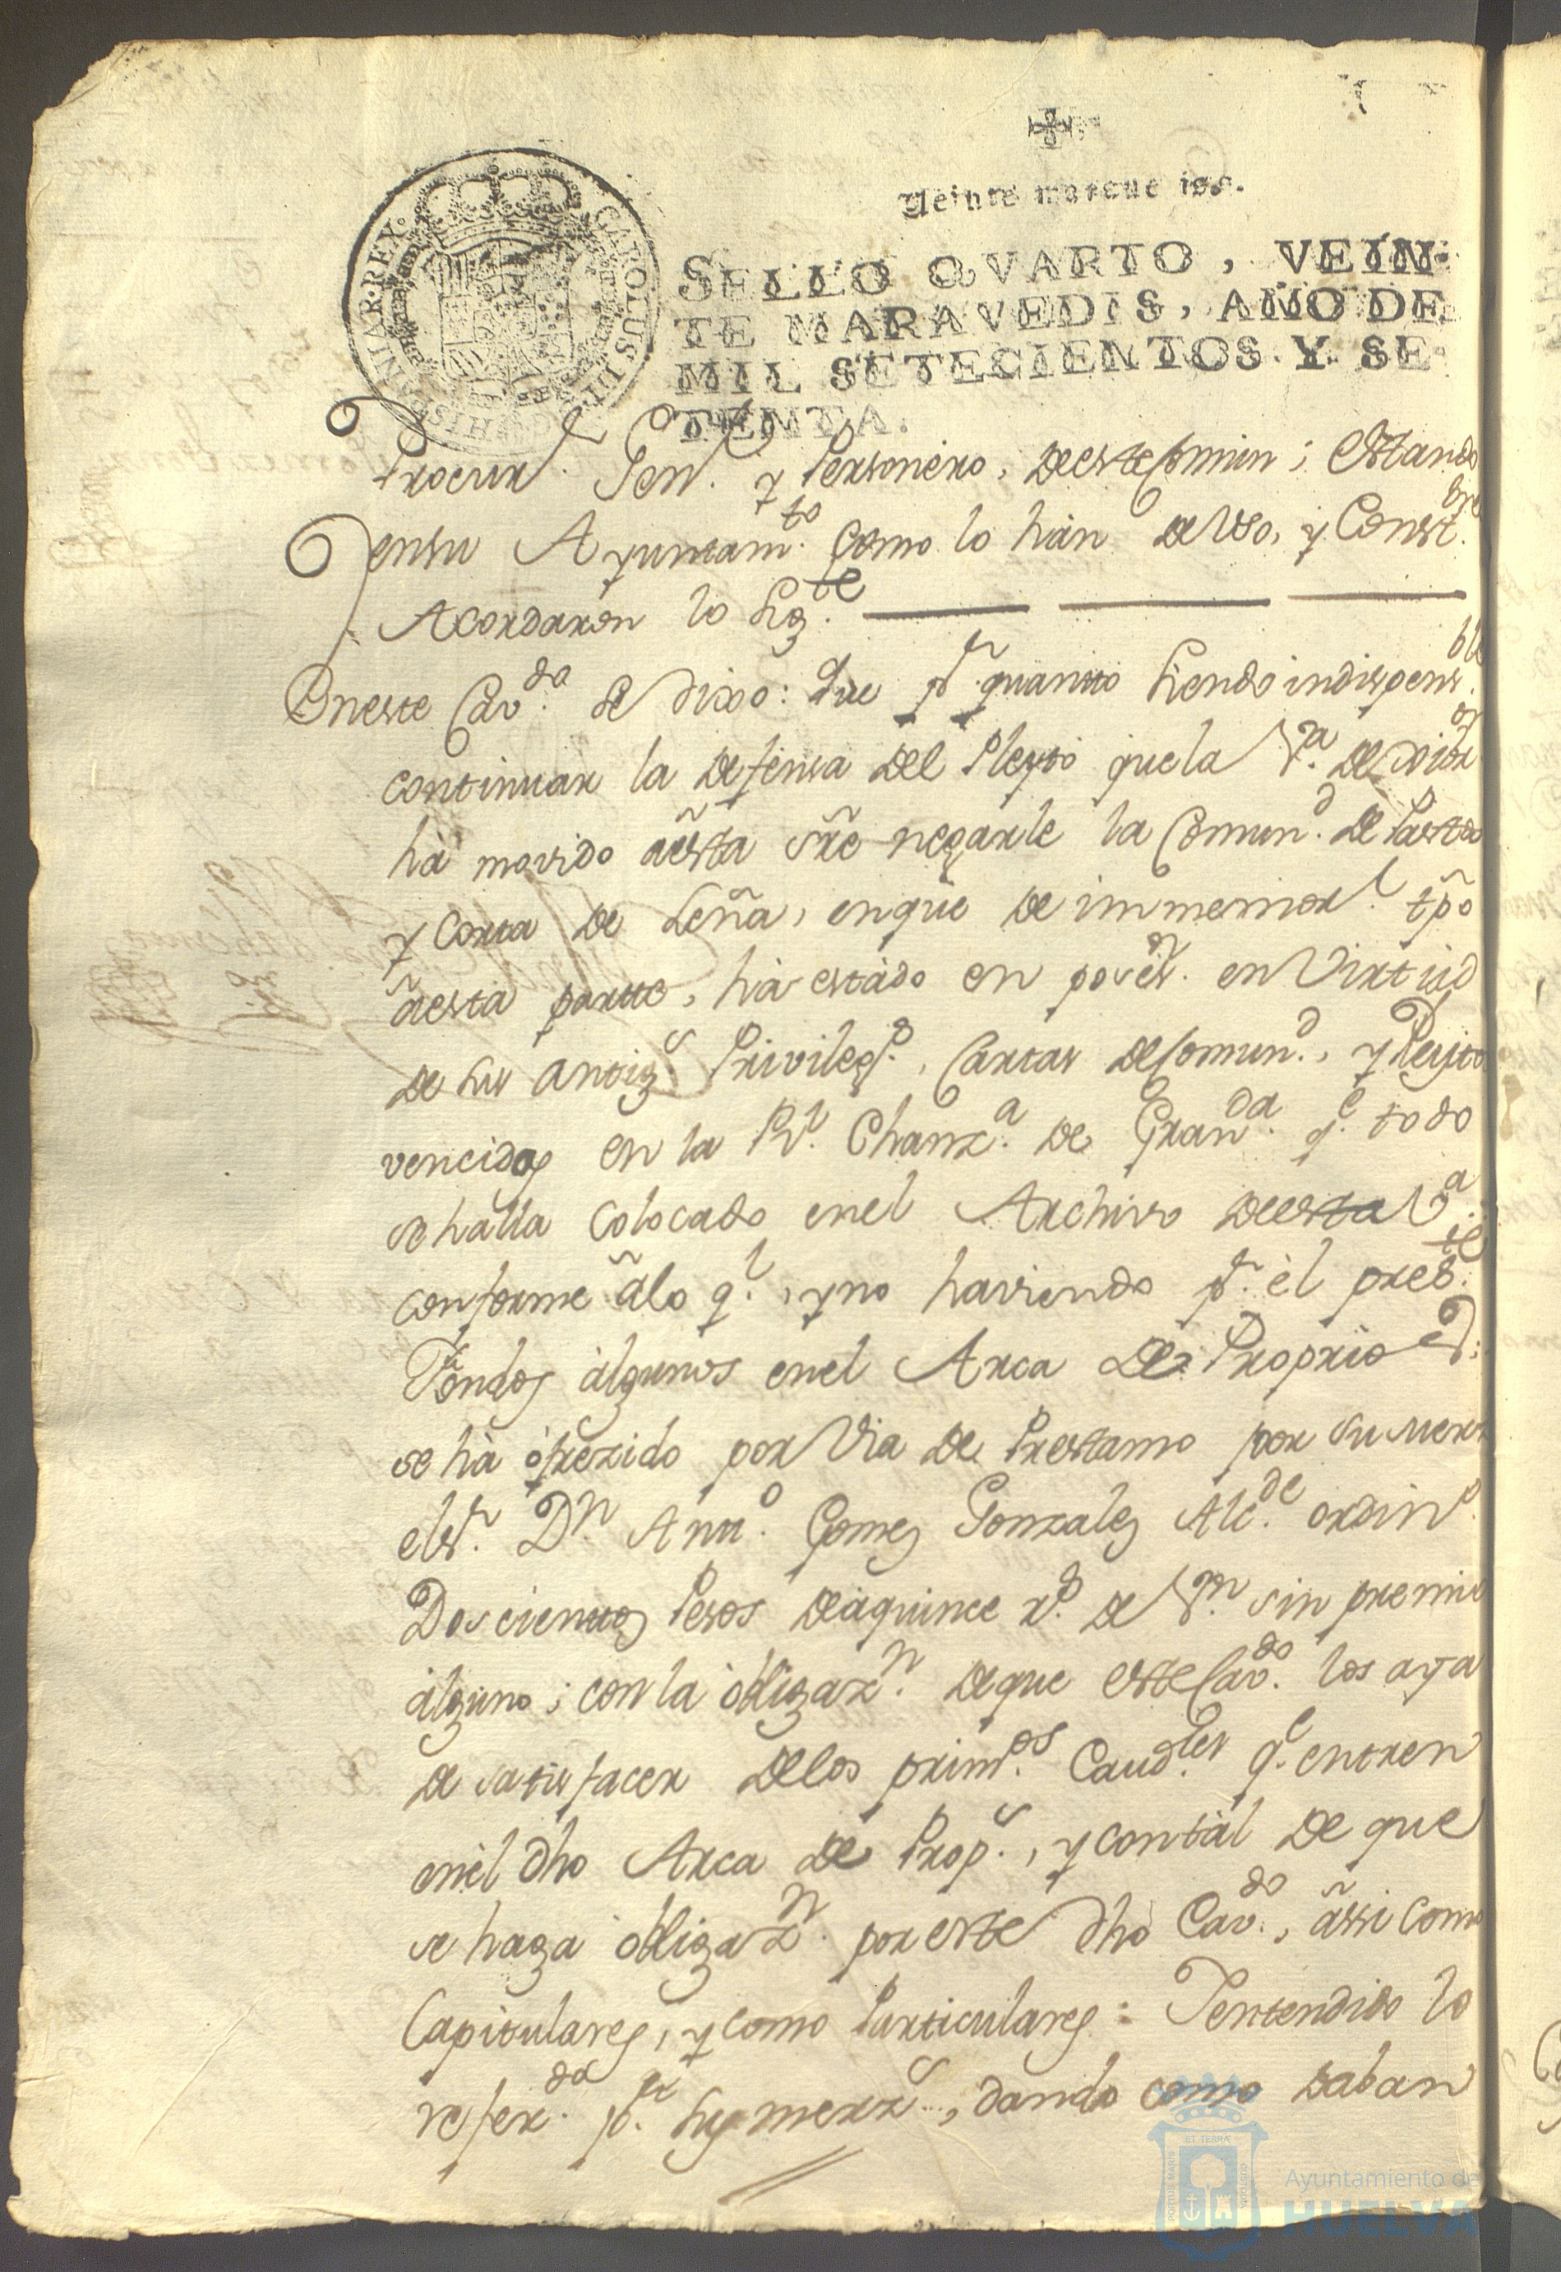 Veinte maraue is.
HISPANIAR. REX.
CAROLUS III D G
SELLO QVARTO, VEIN-
TE MARAVEDIS, AÑO DE
MIL SETECIENTOS Y SE-
TENTA.
Procurr. Gen.l y Personero, deeste Comun; estando
ensu Ayuntam.to como lo hàn de Uso, y Const.bre
Acordaron lo Sig.te
Eneste Cav.do se dixo: Que p.r quanto siendo indispens.ble
continuar la defensa del Pleyto que la V.a de
hà movido àesta sre negarle la Comun.d de Pastos
y Corta de Leña, enque de immemor.l tpo
àesta parte, hà estàdo en poses.on en Virtud
de sus antig.s Privileg.s, Cartas de Comun.d, y Pleytos
vencidos en la R.l Chanz.a de Gran.da q.e todo
se halla colocado enel Archivo deesta V.a
conforme àlo q.l, y no haviendo p.r èl pres.te
Fondos àlgunos enel Arca de Proprios;
se hà òfrezido por Via de Prestamo por su merz.d
els.r D.n Ant.o Gomez Gonzalez Alc.de ordin.o
Doscientos Pesos deàquince r.s de V.n sin premio
àlguno; con la òbligaz.n deque este Cav.do los aya
de satisfacer delos prim.os Caud.les q.e entren
enèl dho Arca de Prop.s, y contàl de que
se haga òbligaz.n por este dho Cav.do, àssi como
Capitulares, y como Particulares: Yentendido lo
refer.do p.r sus merz.s, dando como daban
ET TERRÆ
PORTUS MARIS
CUSTODIA
Ayuntamiento de
HUELVA